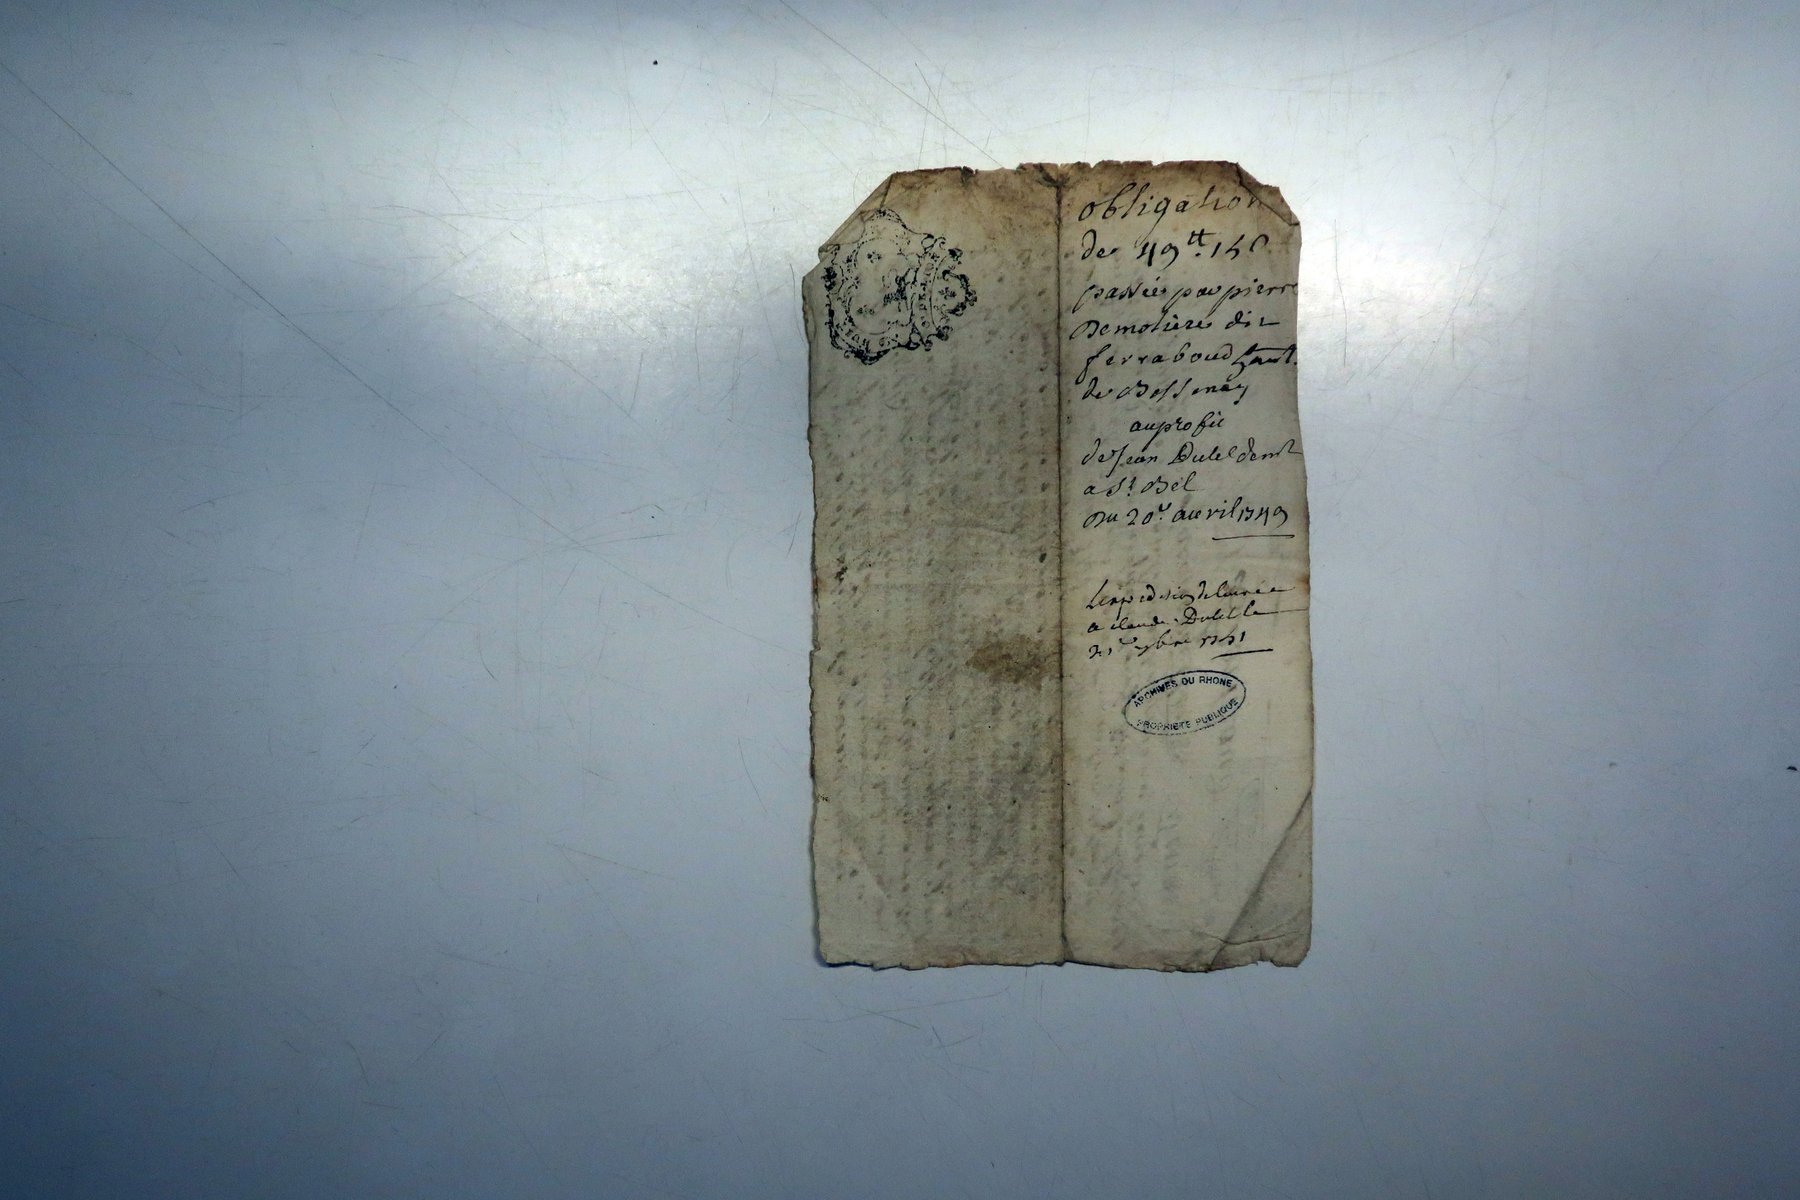 obligation
de 49tt. 15s
passée par pierre
Demolière dit
ferraboud haut.
de Bessenay
au profit
de Jean Dutel demt
a St. Bel
Du 20e. avril 1749
L'expedition delivrée
a claude Dutel le
21e 1751
ARCHIVES DU RHONE
PROPRIETE PUBLIQUE